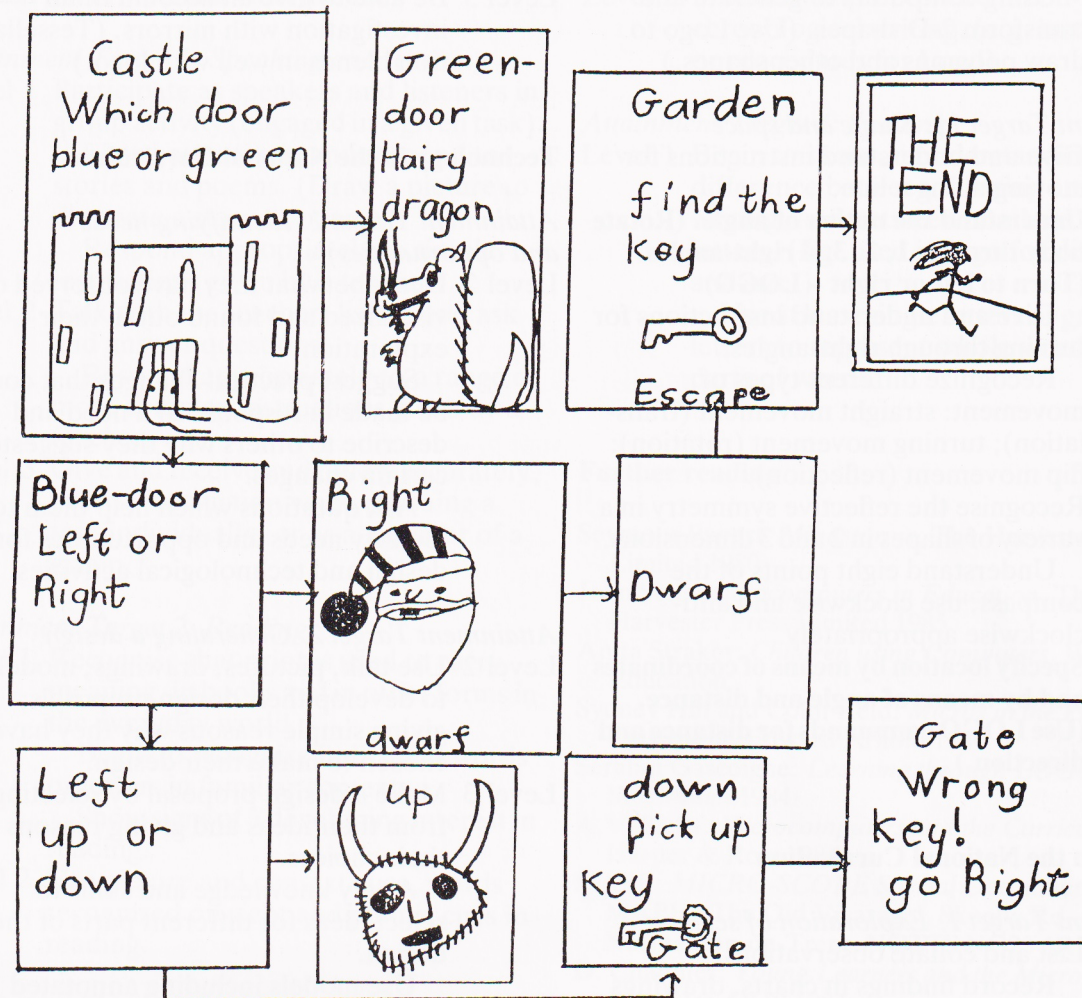 Castle
Which door
blue or green
Green-
door
Hairy
dragon
Garden
find the
key
Escape
THE
END
Blue-door
Left or
Right
Right
dwarf
Dwarf
Left
up or
down
up
down
pick up
Key
Gate
Gate
Wrong
Key!
go Right